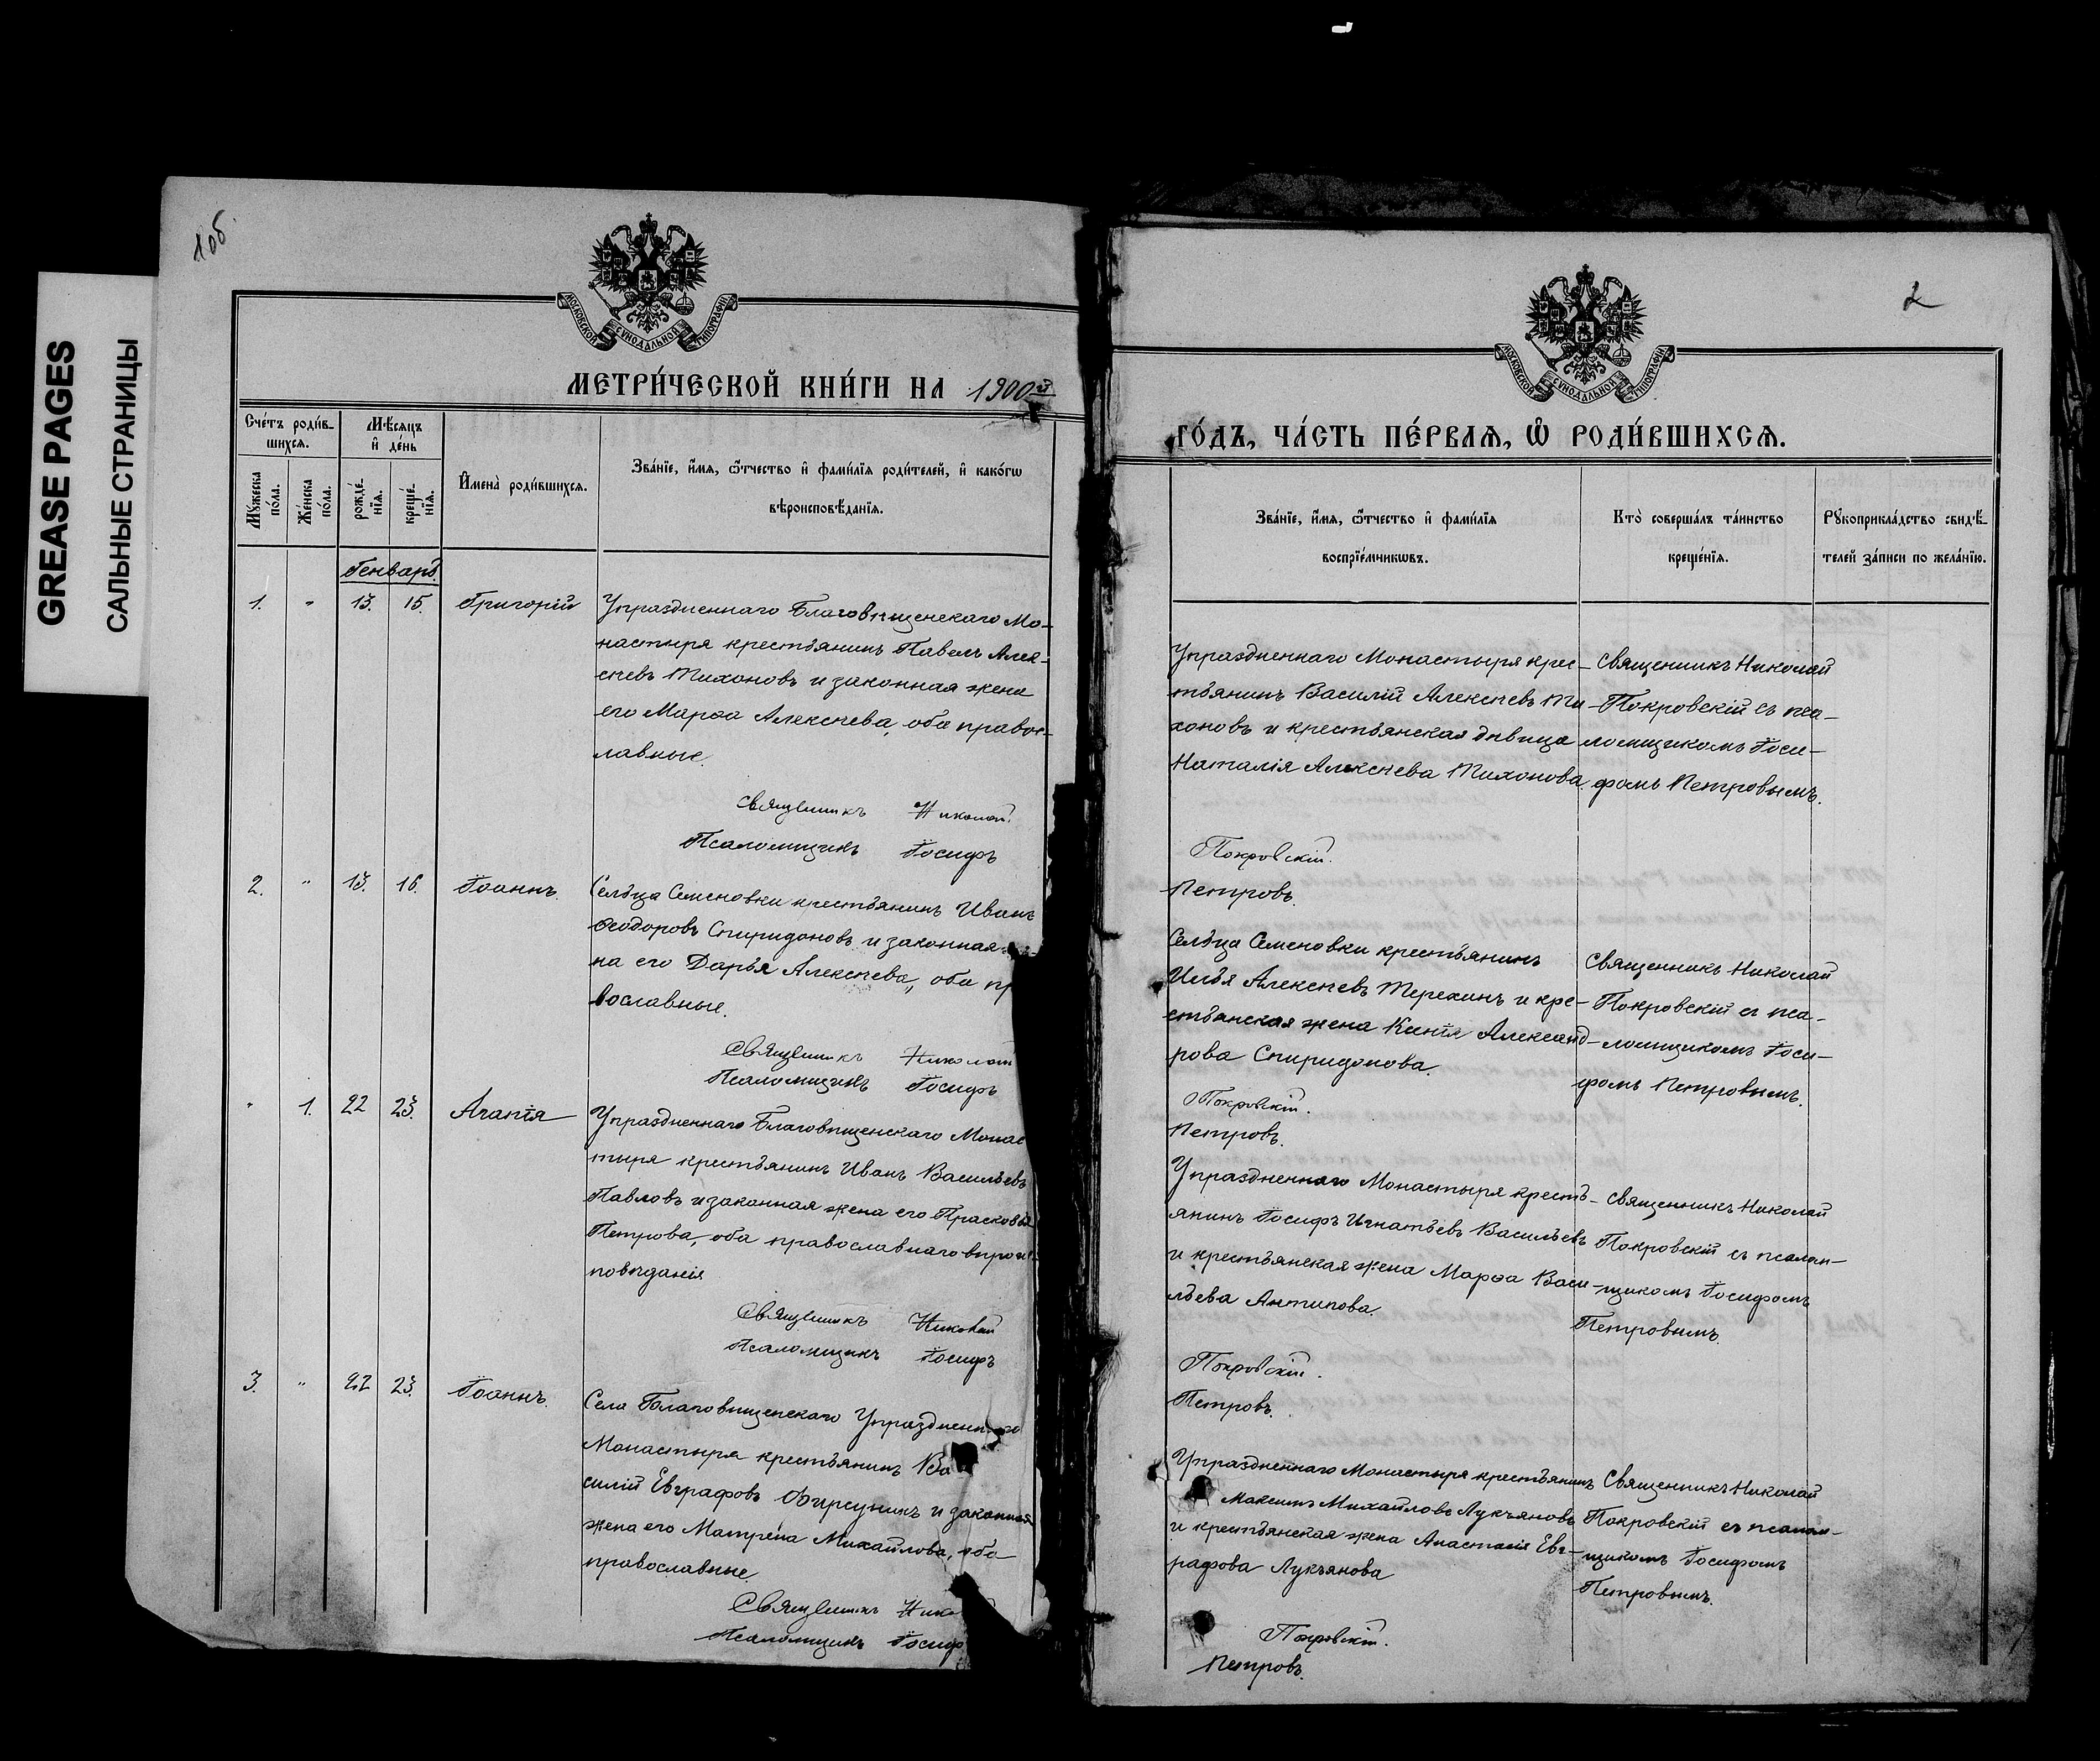 GREASE PAGES
САЛЬНЫЕ СТРАНИЦЫ
1 об.
МОСКОВСКОЙ СУНОДАЛЬНОЙ ТИПОГРАФІИ
МЕТРИ́ЧЕСКОЙ КНИ́ГИ НА 1900й
Сче́тъ роди́в-
шихся.
Мѣ́сяцъ
и҆ де́нь
И҆мена̀ роди́вшихся.
Зва́нїе, и҆́мя, ѻ҆́тчество и҆ фами́лїя роди́телей, и҆ како́гѡ
вѣроисповѣ́данїя.
Мꙋ́жеска
по́ла.
Же́нска
по́ла.
рожде́-
нїя.
креще́-
нїя.
Генварь.
1. " 13. 15. Григорій
Упраздненнаго Благовѣщенскаго Мо-
настыря крестьянинъ Павелъ Алек-
сѣевъ Тихоновъ и законная жена
его Марѳа Алексѣева, оба правос-
лавные.
Священникъ Николай
Псаломщикъ Іосифъ
2. " 13. 16. Іоаннъ.
Сельца Семеновки крестьянинъ Иванъ
Ѳеодоровъ Спиридоновъ и законная
на его Дарья Алексѣева, оба пр
вославные.
Священникъ Николай
Псаломщикъ Іосифъ
" 1. 22 23. Агапія
Упраздненнаго Благовѣщенскаго Монас
тыря крестьянинъ Иванъ Васильевъ
Павловъ и законная жена его Прасковья
Петрова, оба православнаго вѣроис
повѣданія
Священникъ Николай
Псаломщикъ Іосифъ
3. " 22 23. Іоаннъ.
Села Благовѣщенскаго Упраздненнаго
Монастыря крестьянинъ Ва
силій Евграфовъ и законная
жена его Матрена Михайлова, оба
православные.
Священникъ Нико
Псаломщикъ Іосиф
2
МОСКОВСКОЙ СУНОДАЛЬНОЙ ТИПОГРАФІИ
ГО́ДЪ, ЧА́СТЬ ПЕ́РВАЯ, Ѡ҆ РОДИ́ВШИХСЯ.
Зва́нїе, и҆́мя, ѻ҆́тчество и҆ фами́лїя
воспрїе́мникѡвъ.
Кто̀ соверша́лъ та́инство
креще́нїя.
Рꙋкоприкла́дство свидѣ́-
телей за́писи по жела́нїю.
Упраздненнаго Монастыря крес-
тьянинъ Василій Алексѣевъ Ти-
хоновъ и крестьянская дѣвица
Наталія Алексѣева Тихонова.
Священникъ Николай
Покровскій съ пса-
ломщикомъ Іоси-
фомъ Петровымъ.
Покровскій.
Петровъ.
Сельца Семеновки крестьянинъ
Илья Алексѣевъ Терехинъ и кре-
стьянская жена Ксенія Александ-
рова Спиридонова.
Священникъ Николай
Покровскій съ пса-
ломщикомъ Іоси-
фомъ Петровымъ.
Покровскій.
Петровъ.
Упраздненнаго Монастыря кресть-
янинъ Іосифъ Игнатьевъ Васильевъ
и крестьянская жена Марѳа Васи-
льева Антипова.
Священникъ Николай
Покровскій съ псалом-
щикомъ Іосифомъ
Петровымъ.
Покровскій.
Петровъ.
Упраздненнаго Монастыря крестьянинъ
Максимъ Михайловъ Лукьяновъ
и крестьянская жена Анастасія Евг-
рафова Лукъянова
Священникъ Николай
Покровскій съ псалом-
щикомъ Іосифомъ
Петровымъ.
Покровскій.
Петровъ.